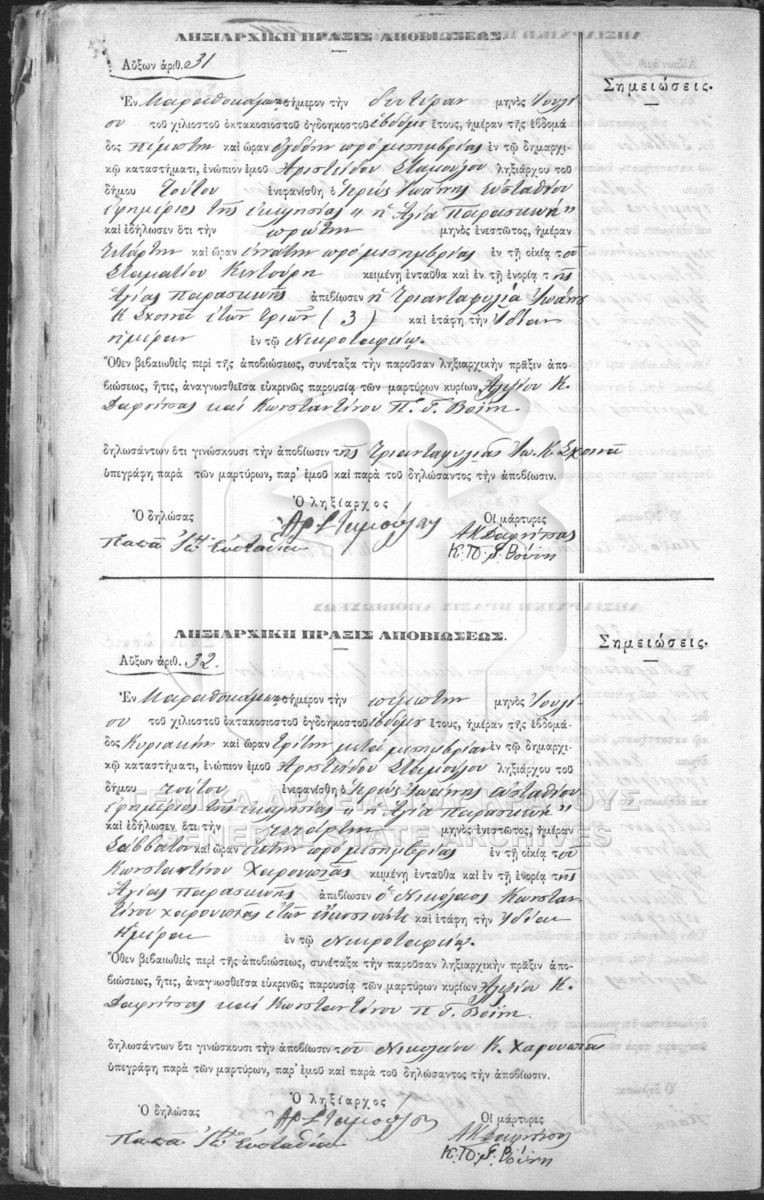 ΛΗΞΙΑΡΧΙΚΗ ΠΡΑΞΙΣ ΑΠΟΒΙΩΣΕΩΣ
Αὔξων ἀριθ. 31
Σημειώσεις.
Ἐν Μαραθοκάμπῳ σήμερον τὴν δευτέραν μηνὸς Ἰουλί
ου τοῦ χιλιοστοῦ ὀκτακοσιοστοῦ ὀγδοηκοστοῦ ἑβδόμου ἔτους, ἡμέραν τῆς ἑβδομά
δος πέμπτην καὶ ὥραν ὀγδόην πρὸ μεσημβρίας ἐν τῷ δημαρχι-
κῷ καταστήματι, ἐνώπιον ἐμοῦ Ἀριστείδου Σταμούλου ληξιάρχου τοῦ
δήμου τούτου ἐνεφανίσθη ὁ ἱερεὺς Ἰωάννης Εὐσταθίου
ἐφημέριος τῆς ἐκκλησίας „ ἡ Ἁγία Παρασκευὴ "
καὶ ἐδήλωσεν ὅτι τὴν πρώτην μηνὸς ἐνεστῶτος, ἡμέραν
τετάρτην καὶ ὥραν ἐννάτην πρὸ μεσημβρίας ἐν τῇ οἰκίᾳ τοῦ
Σταματίου κειμένῃ ἐνταῦθα καὶ ἐν τῇ ἐνορίᾳ τῆς
Ἁγίας Παρασκευῆς ἀπεβίωσεν ἡ Τριανταφυλιὰ Ἰωάν
Κ Σχοινᾶ ἐτῶν τριῶν ( 3 ) καὶ ἐτάφη τὴν ἰδίαν
ἡμέραν ἐν τῷ Νεκροταφείῳ.
Ὅθεν βεβαιωθεὶς περὶ τῆς ἀποβιώσεως, συνέταξα τὴν παροῦσαν ληξιαρχικὴν πρᾶξιν ἀπο-
βιώσεως, ἥτις, ἀναγνωσθεῖσα εὐκρινῶς παρουσίᾳ τῶν μαρτύρων κυρίων, Ἀλεξίου Κ.
καὶ Κωνσταντίνου Π. Γ. Βοΐνη.
δηλωσάντων ὅτι γινώσκουσι τὴν ἀποβίωσιν τῆς Τριανταφυλιᾶς Ἰω. Κ. Σχοινᾶ
ὑπεγράφη παρὰ τῶν μαρτύρων, παρ' ἐμοῦ καὶ παρὰ τοῦ δηλώσαντος τὴν ἀποβίωσιν.
Ὁ δηλώσας
Ὁ ληξίαρχος
Οἱ μάρτυρες
Παπᾶ Ἰω Εὐσταθίου
Αρ Σταμούλος
Κ. Π. Γ. Βοΐνη
ΛΗΞΙΑΡΧΙΚΗ ΠΡΑΞΙΣ ΑΠΟΒΙΩΣΕΩΣ.
Αὔξων ἀριθ. 32.
Σημειώσεις.
Ἐν Μαραθοκάμπῳ σήμερον τὴν πέμπτην μηνὸς Ἰουλί
ου τοῦ χιλιοστοῦ ὀκτακοσιοστοῦ ὀγδοηκοστοῦ ἑβδόμου ἔτους, ἡμέραν τῆς ἑβδομά-
δος Κυριακὴν καὶ ὥραν τρίτην μετὰ μεσημβρίαν ἐν τῷ δημαρχι-
κῷ καταστήματι, ἐνώπιον ἐμοῦ Ἀριστείδου Σταμούλου ληξιάρχου τοῦ
δήμου τούτου ἐνεφανίσθη ὁ ἱερεὺς Ἰωάννης Εὐσταθίου
ἐφημέριος τῆς ἐκκλησίας „ ἡ Ἁγία Παρασκευὴ "
καὶ ἐδήλωσεν ὅτι τὴν τετάρτην μηνὸς ἐνεστῶτος, ἡμέραν
Σάββατον καὶ ὥραν ἕκτην πρὸ μεσημβρίας ἐν τῇ οἰκίᾳ τοῦ
Κωνσταντίνου Χαρουπιᾶς κειμένῃ ἐνταῦθα καὶ ἐν τῇ ἐνορίᾳ τῆς
Ἁγίας Παρασκευῆς ἀπεβίωσεν ὁ Νικόλαος Κωνσταν
τίνου Χαρουπιᾶς ἐτῶν εἴκοσι πέντε καὶ ἐτάφη τὴν ἰδίαν
ἡμέραν ἐν τῷ Νεκροταφείῳ.
Ὅθεν βεβαιωθεὶς περὶ τῆς ἀποβιώσεως, συνέταξα τὴν παροῦσαν ληξιαρχικὴν πρᾶξιν ἀπο-
βιώσεως, ἥτις, ἀναγνωσθεῖσα εὐκρινῶς παρουσίᾳ τῶν μαρτύρων κυρίων Ἀλεξίου Κ.
καὶ Κωνσταντίνου Π Γ. Βοΐνη.
δηλωσάντων ὅτι γινώσκουσι τὴν ἀποβίωσιν τοῦ Νικολάου Κ. Χαρουπιᾶ
ὑπεγράφη παρὰ τῶν μαρτύρων, παρ' ἐμοῦ καὶ παρὰ τοῦ δηλώσαντος τὴν ἀποβίωσιν.
Ὁ δηλώσας
Ὁ ληξίαρχος
Οἱ μάρτυρες
Παπᾶ Ἰω Εὐσταθίου
Αρ Σταμούλος
Κ. Π. Γ. Βοΐνη
ΓΕΝΙΚΑ ΑΡΧΕΙΑ ΤΟΥ ΚΡΑΤΟΥΣ
GENERAL STATE ARCHIVES